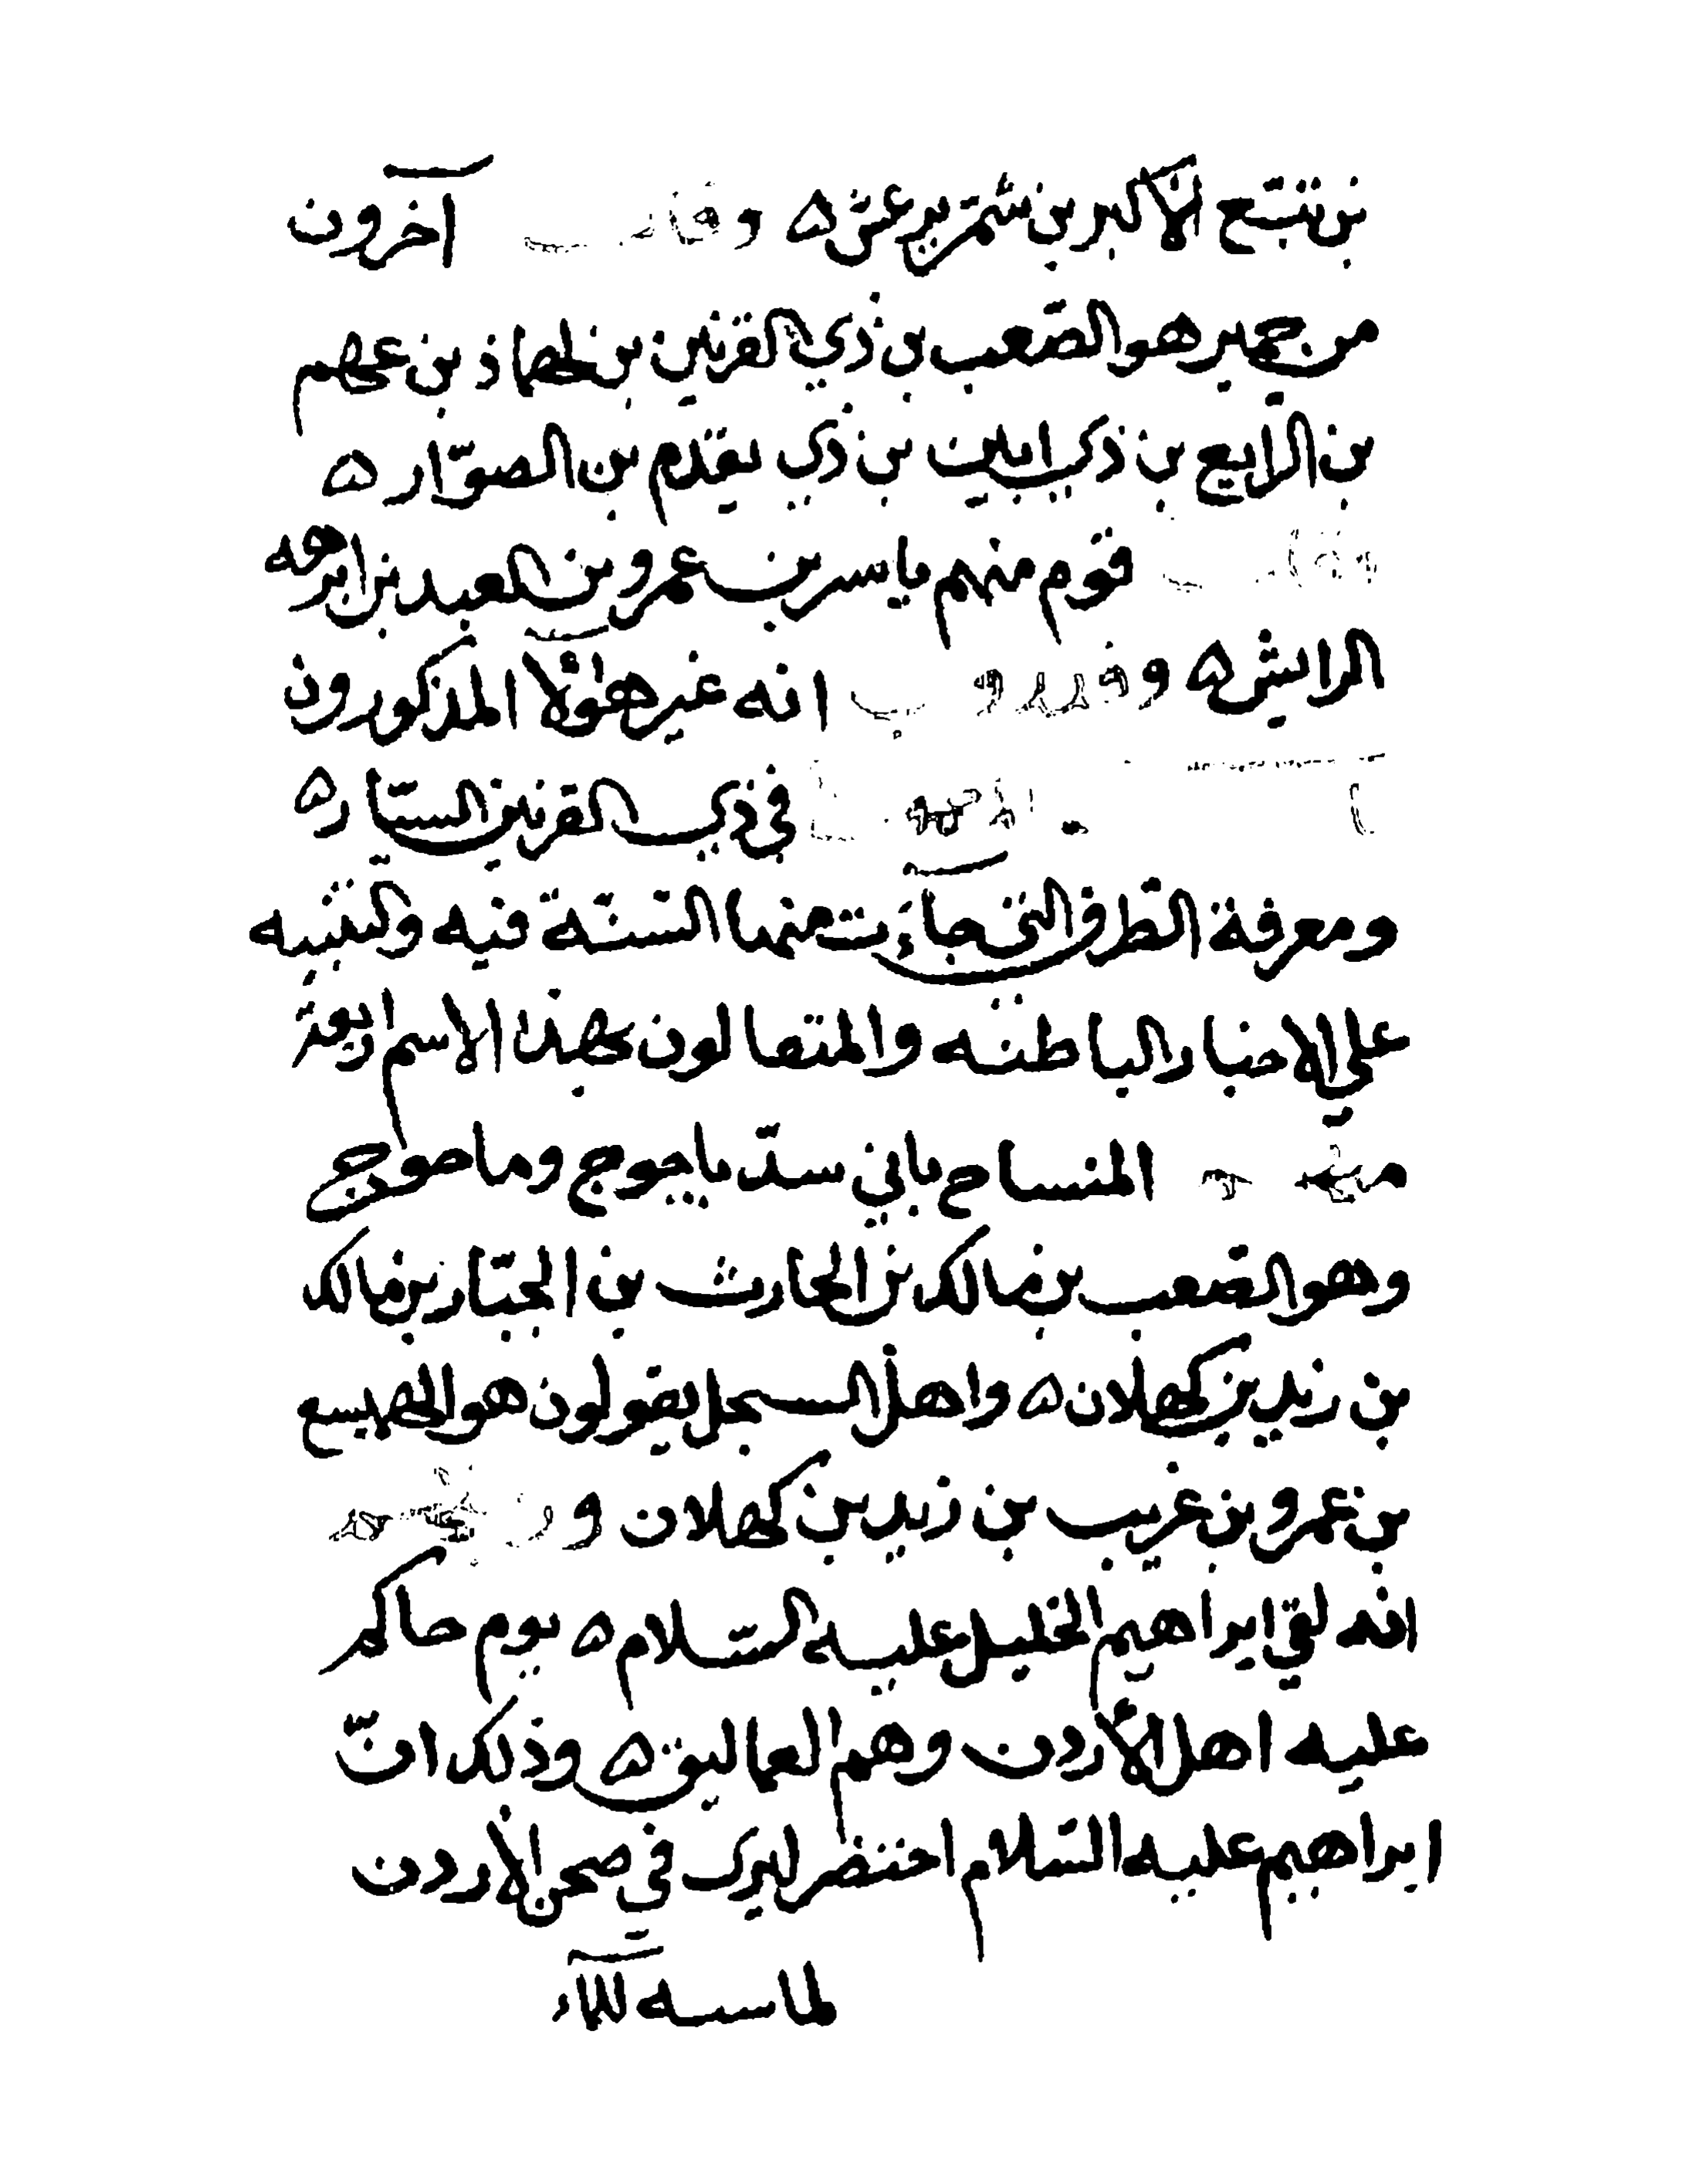 بن تبّع الأكبر بن شمّر يرعش ه وقال آخرون
من حمير هو الصّعب بن ذي القرنين بن
بن الرايع بن ذي ابين بن ذي يقدم بن الصوّار ه
وقال قوم منهم ياسر بن عمرو بن العبد بن ابرهه
الرايش ه و انه غير هؤلآ المذكورون
في ذي القرنين السيّار ه
ومعرفة الطرق التي جاءت منها السنّة فيه والتنبيه
على الاخبار الباطنه والمتقالون بهذا الاسم اربعة
المنساح باني سدّ ياجوج وماجوج
وهو الصّعب بن مالك بن الحارث بن الجبّار بن مالك
بن زيد بن كهلان ه واهل السجل يقولون هو الهميسع
بن عمرو بن عريب بن زيد بن كهلان و
انه لقي ابراهيم الخليل عليه السّلام ه يوم حاكم
عليه اهل الأردن وهم العماليق ه وذلك انّ
ابراهيم عليه السّلام احتفر ليرى في صحن الأردن
لماسيه للمآء